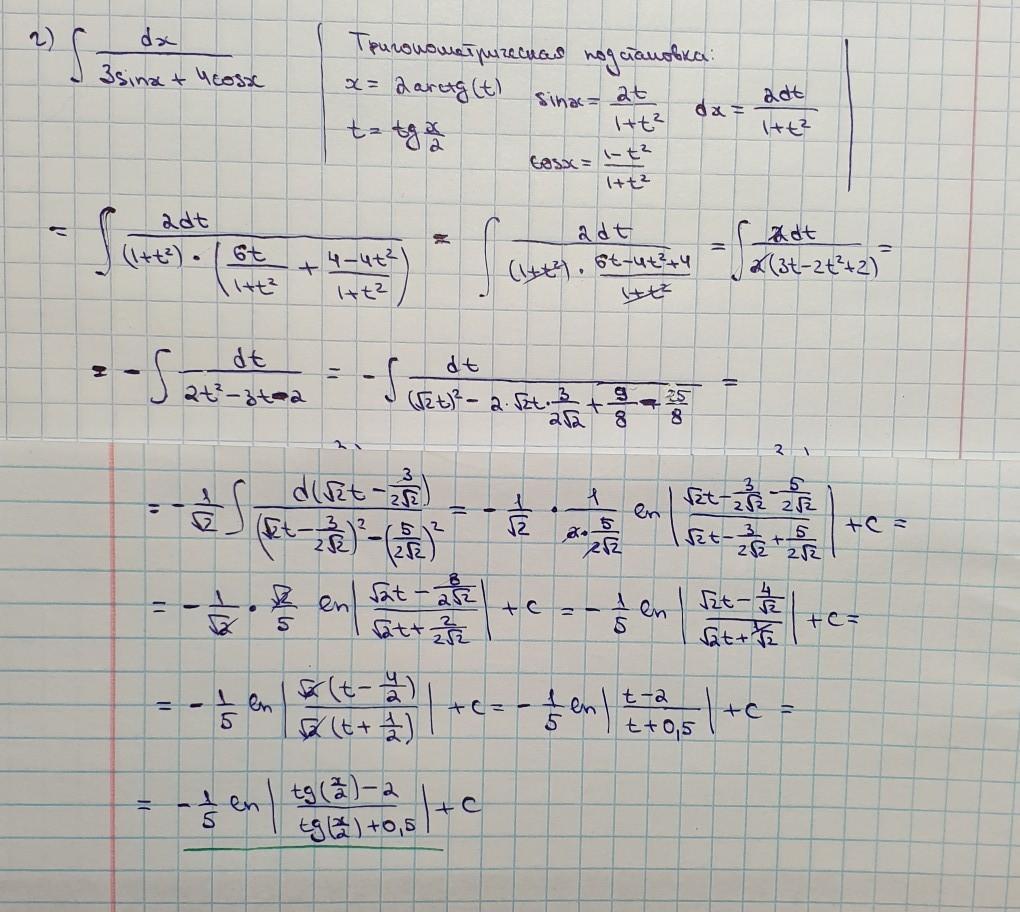 2) ∫ dx / (3sinx + 4cosx) | Тригонометрическая подстановка: |
x = 2arctg(t) sinx = 2t / (1+t²) dx = 2dt / (1+t²)
t = tg x/2 cosx = (1-t²) / (1+t²)
= ∫ 2dt / ((1+t²) · (6t/(1+t²) + (4-4t²)/(1+t²))) = ∫ 2dt / ((1+t²) · (6t-4t²+4)/(1+t²)) = ∫ 2dt / (2(3t-2t²+2)) =
= - ∫ dt / (2t²-3t-2) = - ∫ dt / ((√2t)² - 2·√2t·3/(2√2) + 9/8 - 25/8) =
= - 1/√2 ∫ d(√2t - 3/(2√2)) / ((√2t - 3/(2√2))² - (5/(2√2))²) = - 1/√2 · 1/(2·5/(2√2)) ln |(√2t - 3/(2√2) - 5/(2√2)) / (√2t - 3/(2√2) + 5/(2√2))| + C =
= - 1/√2 · √2/5 ln |(√2t - 8/(2√2)) / (√2t + 2/(2√2))| + C = - 1/5 ln |(√2t - 4/√2) / (√2t + 1/√2)| + C =
= - 1/5 ln |√2(t - 4/2) / (√2(t + 1/2))| + C = - 1/5 ln |(t-2) / (t+0,5)| + C =
= - 1/5 ln |(tg(x/2) - 2) / (tg(x/2) + 0,5)| + C